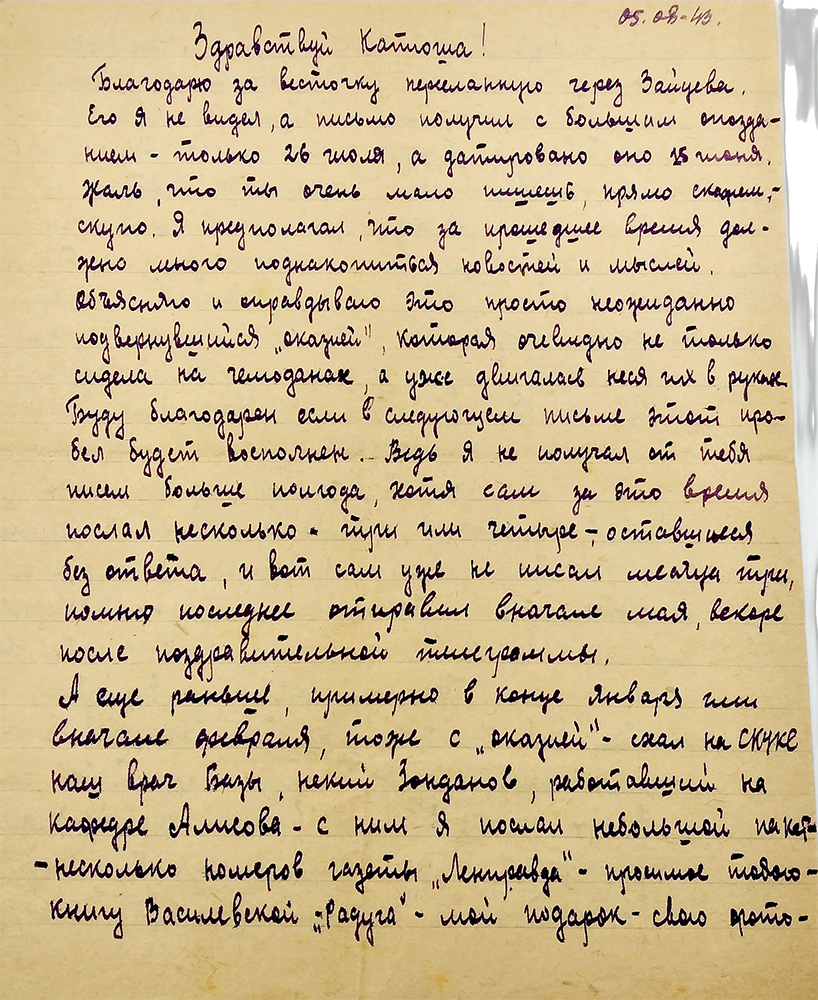 05.08-43.
Здравствуй Катюша!
Благодарю за весточку пересланную через Зайцева.
Его я не видел, а письмо получил с большим опозда-
нием - только 26 июля, а датировано оно 15 июня.
Жаль, что ты очень мало пишешь, прямо скажем,-
скупо. Я предполагал, что за прошедшее время дол-
жно много поднакопиться новостей и мыслей.
Объясняю и оправдываю это просто неожиданно
подвернувшийся „оказией", которая очевидно не только
сидела на чемоданах, а уже двигалась неся их в руках
Буду благодарен если в следующем письме этот про-
бел будет восполнен. Ведь я не получал от тебя
писем больше полгода, хотя сам за это время
послал несколько - три или четыре -, оставшиеся
без ответа, и вот сам уже не писал месяца три,
помню последнее отправил вначале мая, вскоре
после поздравительной телеграммы.
А еще раньше, примерно в конце января или
вначале февраля, тоже с „оказией" - ехал на СКУКС
наш врач Базы, некий Зонданов, работавший на
кафедре Алисова - с ним я послал небольшой пакет-
- несколько номеров газеты „Ленправда" - просимое тобою -
книгу Василевской „Радуга" - мой подарок - свою фото-